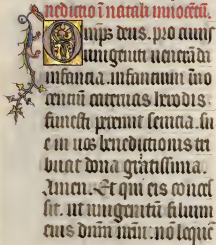 nedictio ī natali innocētū.
Omp̄s deus. pro cuius
unigeniti ueneranda
infancia. infancium īno
centū cateruas herodis
funesti peremit seuicia. su
e in uos benedictionis tri
buat dona gratissima.
Amen. Et qui eis conces
sit. ut unigenitū filium
eius dn̄m nr̄m: non loque